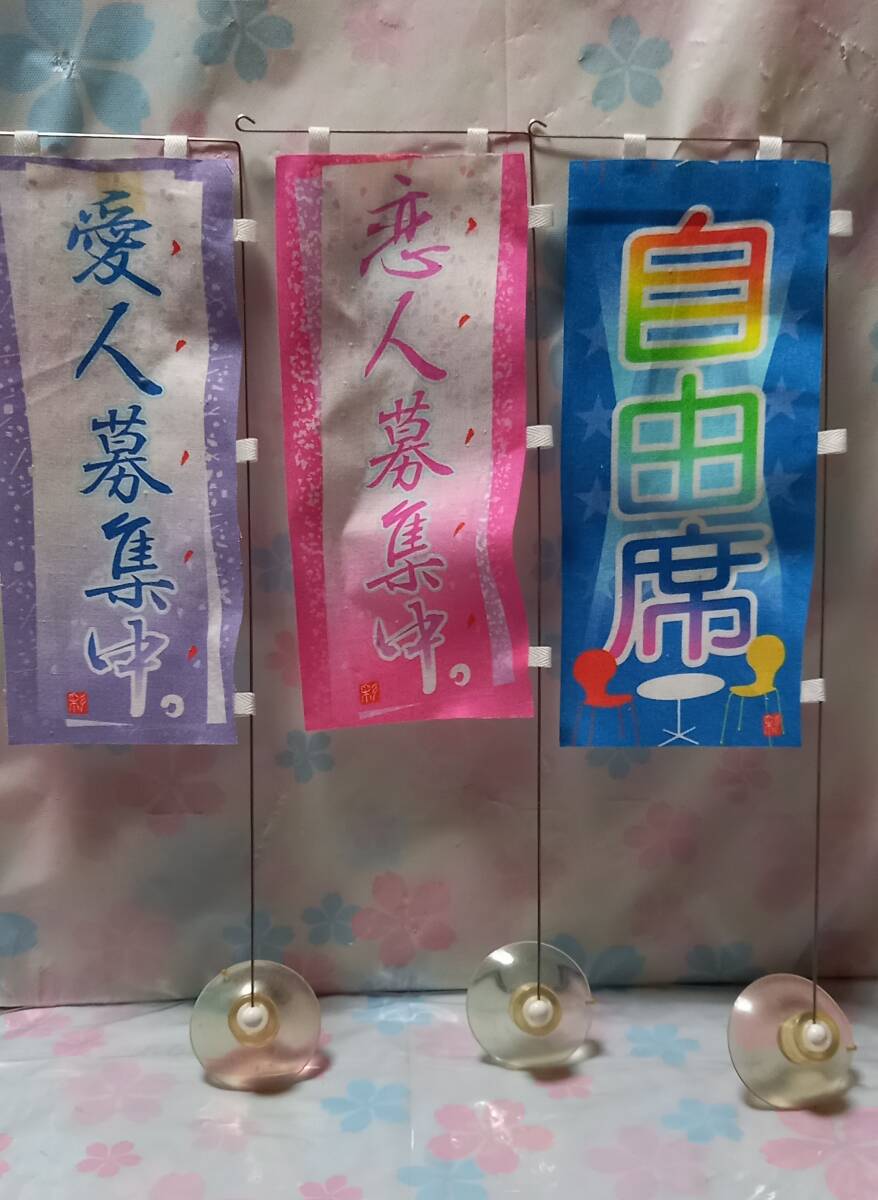 愛人募集中。
恋人募集中。
自由席
彩
彩
彩